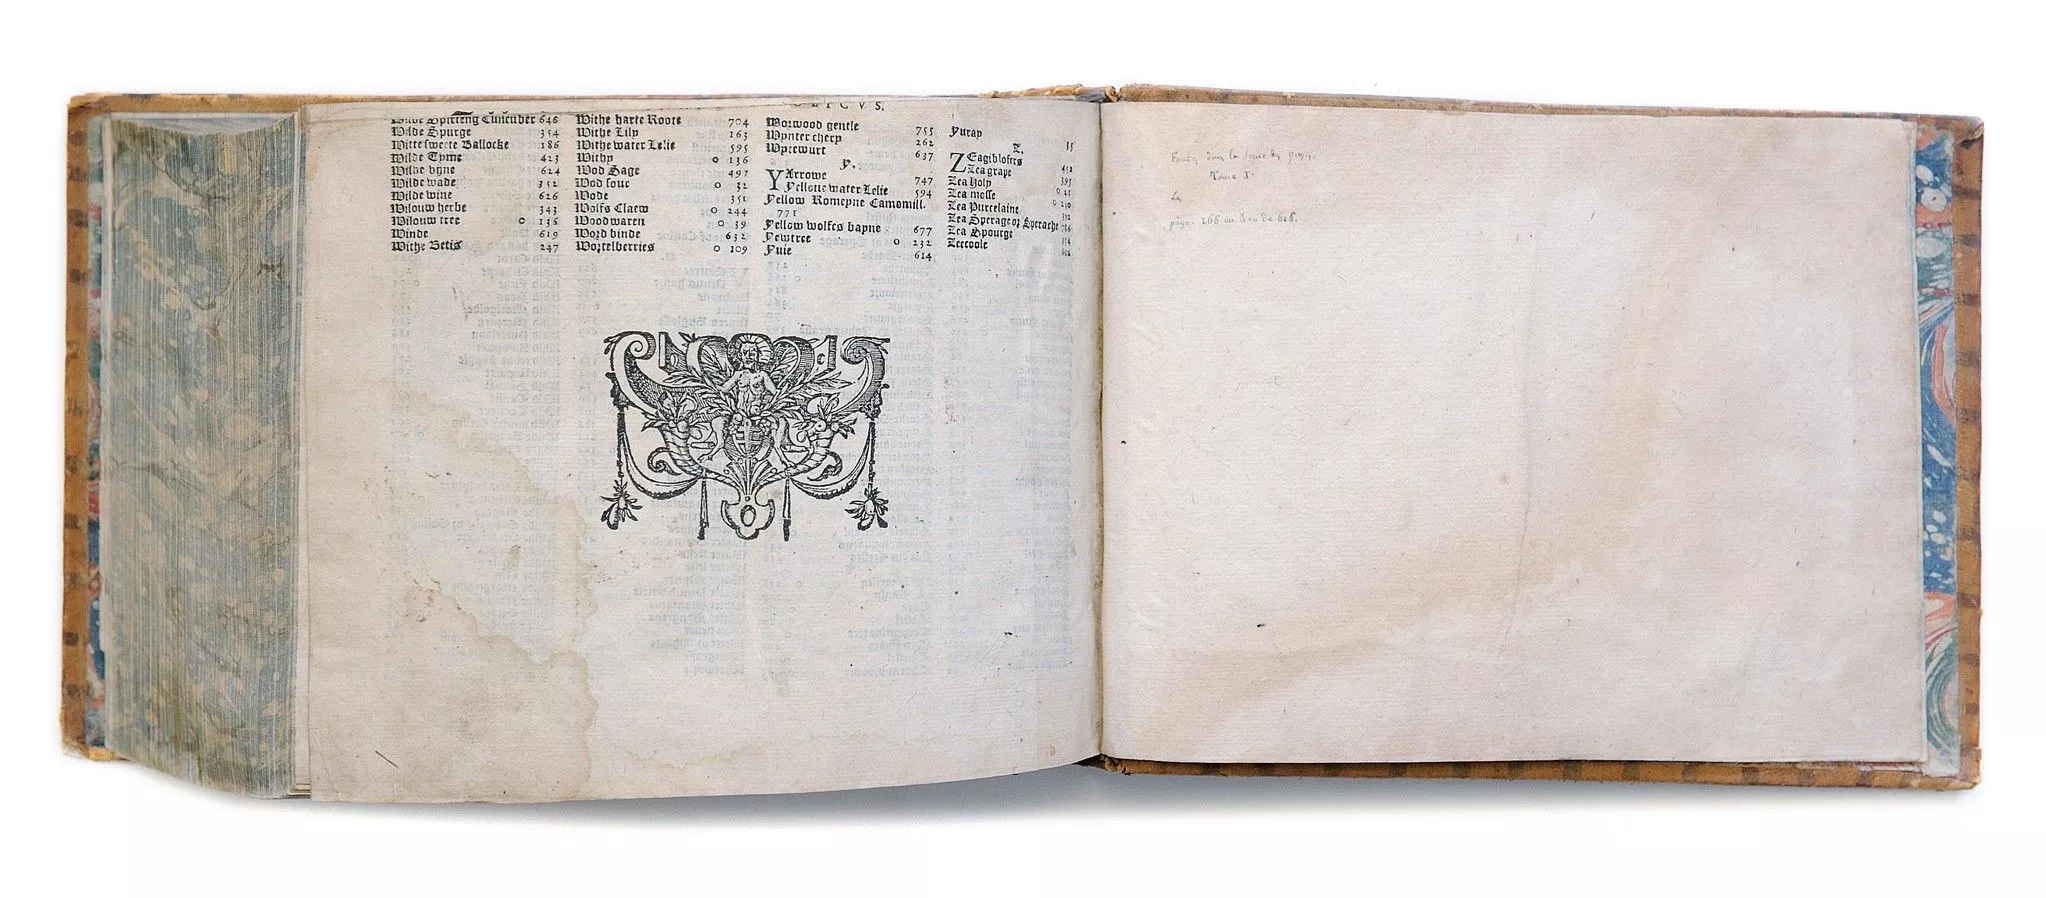 LICVS.
Wilde Spirteng Cuncuber 646
Wilde Spurge 354
Witte sweete Ballocke 186
Wilde Tyme 423
Wilde vyne 624
Wilde wade 352
Wilde wine 626
Wilouw herbe 343
Wilouw tree o 136
Winde 619
Withe Betis 247
Withe harte Roote 704
Withe Lily 163
Withe water Lelie 595
Withy o 136
Wod Sage 497
Wod souc o 32
Wode 351
Wolfs Claew o 244
Wood waren o 39
Word binde 632
Wortelberries o 109
Worwood gentle 755
Wynter chery 262
Wyrewurt 637
Y.
YArrowe 747
Yellone water Lelie 594
Yellow Romeyne Camomill.
771
Yellow wolfes bayne 677
Yewtree o 232
Yuie 614
Yuray 35
Z.
ZEagiblofers
Zea grape 432
Zea Holy 395
Zea mosse o 21
Zea Purcelaine o 230
Zea Sperage or Sperache
Zea Spourge
Zeecoole
Tome I.
page. 266 au lieu de 626.